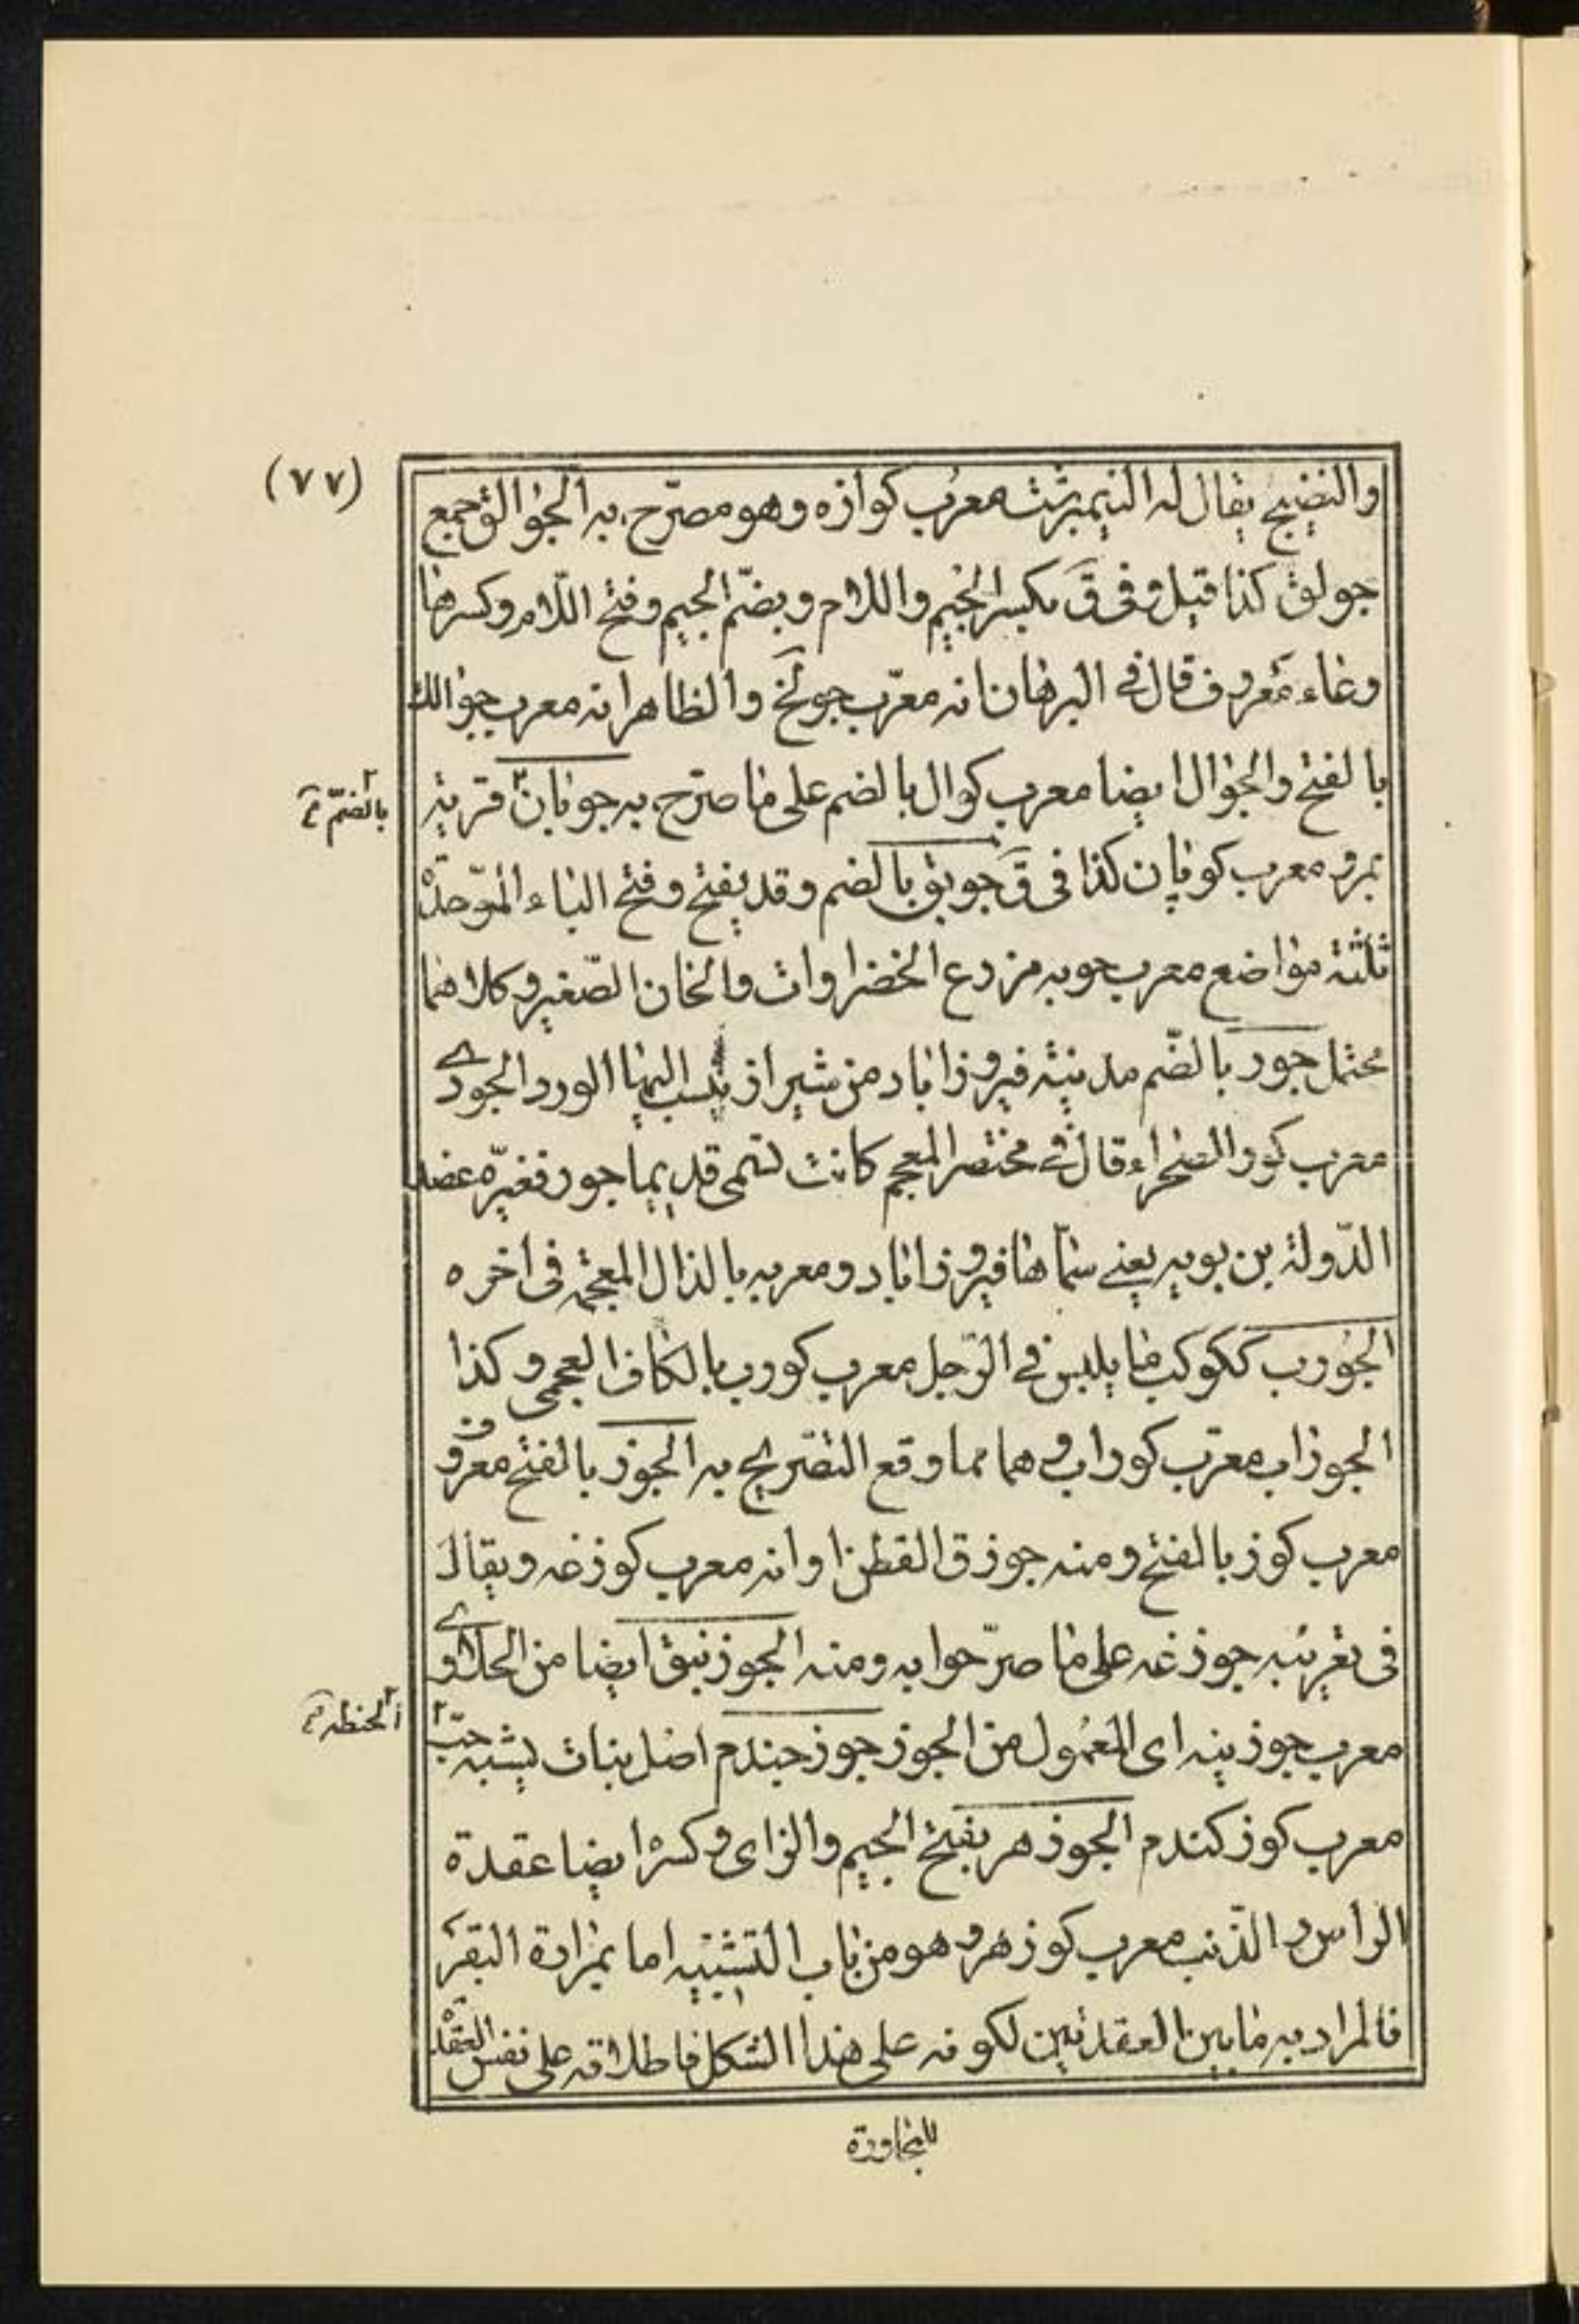 (٧٧)
والنضيج يقال له النيمبرشت معرب كوازه وهو مصرّح به الجوالق جمع
جولق كذا قيل وفى ق بكسر الجيم واللام وبضمّ الجيم وفتح اللّام وكسرها
وعاء معروف قال فى البرهان انه معرّب جولخ والظاهر انه معرب جوالك
بالفتح والجوال ايضا معرب كوال بالضم على ما صرّح به جوبان قرية
بالضمّ
بمرو معرب كوپان كذا فى ق جوبق بالضم وقد يفتح وفتح الباء الموّحدة
ثلثة مواضع معرب جوبه مزرع الخضراوات والخان الصّغير وكلاهما
محتمل جور بالضّم مدينة فيروزاباد من شيراز ينسب اليها الورد الجورى
معرب كور والصحراء قال فى مختصر المعجم كانت تسمى قديما جور فغيرّه عضد
الدّولة بن بويه يعنى سمّاها فيروزاباد ومعربه بالذال المعجمة فى اخره
الجورب ككوكب ما يلبس فى الرّجل معرب كورب بالكاف العجمى وكذا
الجوزاب معرّب كوراب وهما مما وقع التصّريح به الجوز بالفتح معروف
معرب كوز بالفتح ومنه جوزق القطن او انه معرب كوزغه ويقال
فى تعريبه جوزغه على ما صرّحوا به ومنه الجوزينق ايضا من الحلاوى
معرب جوزينه اى المعمول من الجوز جوز جندم اصل نبات يشبه حبّ
الحنطه
معرب كوز كندم الجوزهر بفتح الجيم والزاى وكسرا ايضا عقدة
الراس والذّنب معرب كوزهر وهو من باب التشبيه اما بمزادة البقر
فالمراد به ما بين العقدتين لكونه على هذا الشكل فاطلاقه على نفس العقدة
للمجاورة